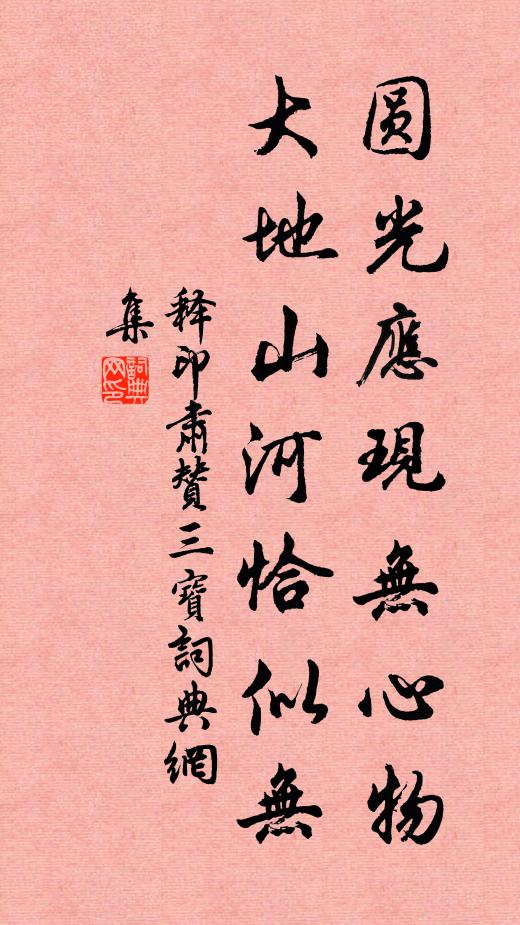 圆光應現無心物
大地山河恰似無
释印肅贊三寶詞典網
集
詞典网印